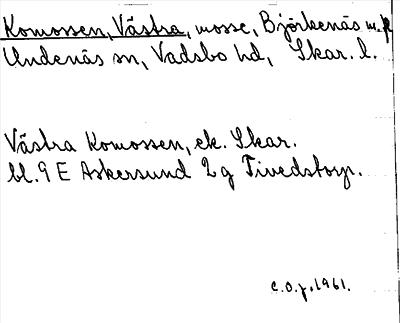 Komossen, Västra, mosse, Björkenäs m.fl.
Undenäs sn, Vadsbo hd, Skar. l.
Västra Komossen, ek. Skar.
bl. 9 E Askersund 2 g Tivedstorp.
C.O.J. 1961.